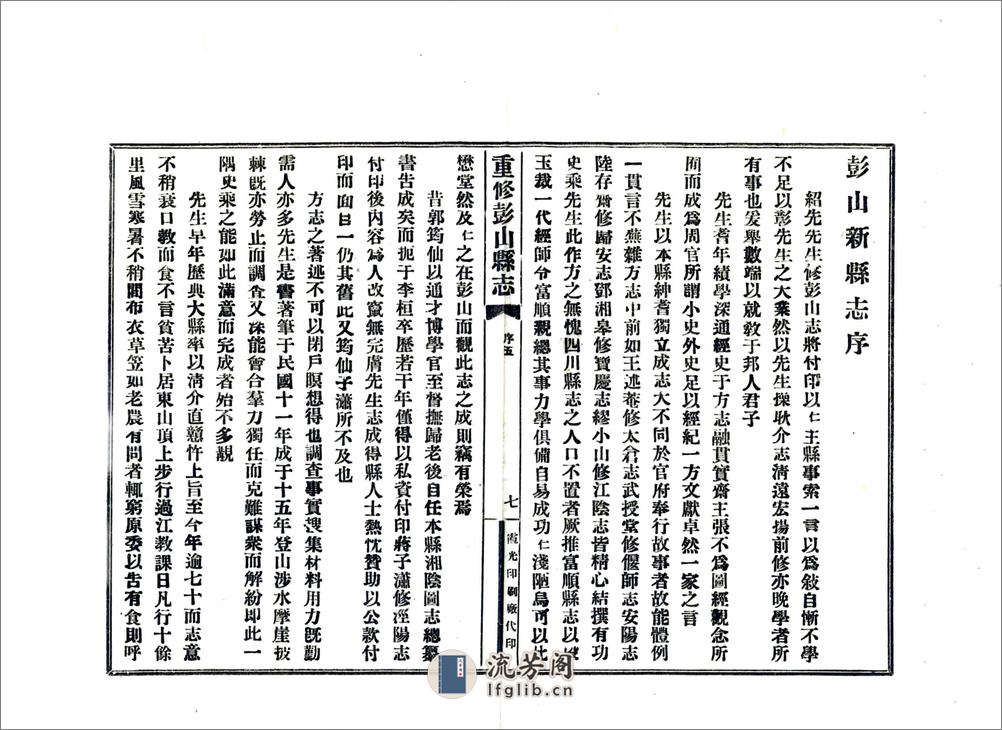 彭山新縣志序
紹先先生修彭山志將付印以仁主縣事索一言以為敘自慚不學
不足以彰先生之大業然以先生操耿介志淸遠宏揚前修亦晚學者所
有事也爰舉數端以就敎于邦人君子
先生耆年績學深通經史于方志融貫實齋主張不為圖經觀念所
囿而成為周官所謂小史外史足以經紀一方文獻卓然一家之言
先生以本縣紳耆獨立成志大不同於官府奉行故事者故能體例
一貫言不蕪雜方志中前如王述菴修太倉志武授堂修偃師志安陽志
陸存齋修歸安志鄧湘皋修寶慶志繆小山修江陰志皆精心結撰有功
史乘先生此作方之無愧四川縣志之人口不置者厥推富順縣志以
玉裁一代經師令富順親總其事力學俱備自易成功仁淺陋烏可以比
重修彭山縣志
序五
七
霞光印刷廠代印
懋堂然及仁之在彭山而觀此志之成則竊有榮焉
昔郭筠仙以通才博學官至督撫歸老後自任本縣湘陰圖志總纂
書苦成矣而扼于李桓卒歷若干年僅得以私資付印蔣子瀟修涇陽志
付印後內容為人改竄無完膚先生志成得縣人士熱忱贊助以公款付
印而面目一仍其舊此又筠仙子瀟所不及也
方志之著述不可以閉戶瞑想得也調查事實搜集材料用力旣勤
需人亦多先生是書著筆于民國十一年成于十五年登山涉水摩崖披
棘旣亦勞止而調查又深能會合羣力獨任而克難謀衆而解紛即此一
隅史乘之能如此滿意而完成者始不多覯
先生早年歷典大縣率以淸介直戇忤上旨至今年逾七十而志意
不稍衰口敎而食不言貧苦卜居東山頂上步行過江敎課日凡行十餘
里風雪寒暑不稍閒布衣草笠如老農有問者輒窮原委以告有食則呼
流芳阁
lfglib.cn